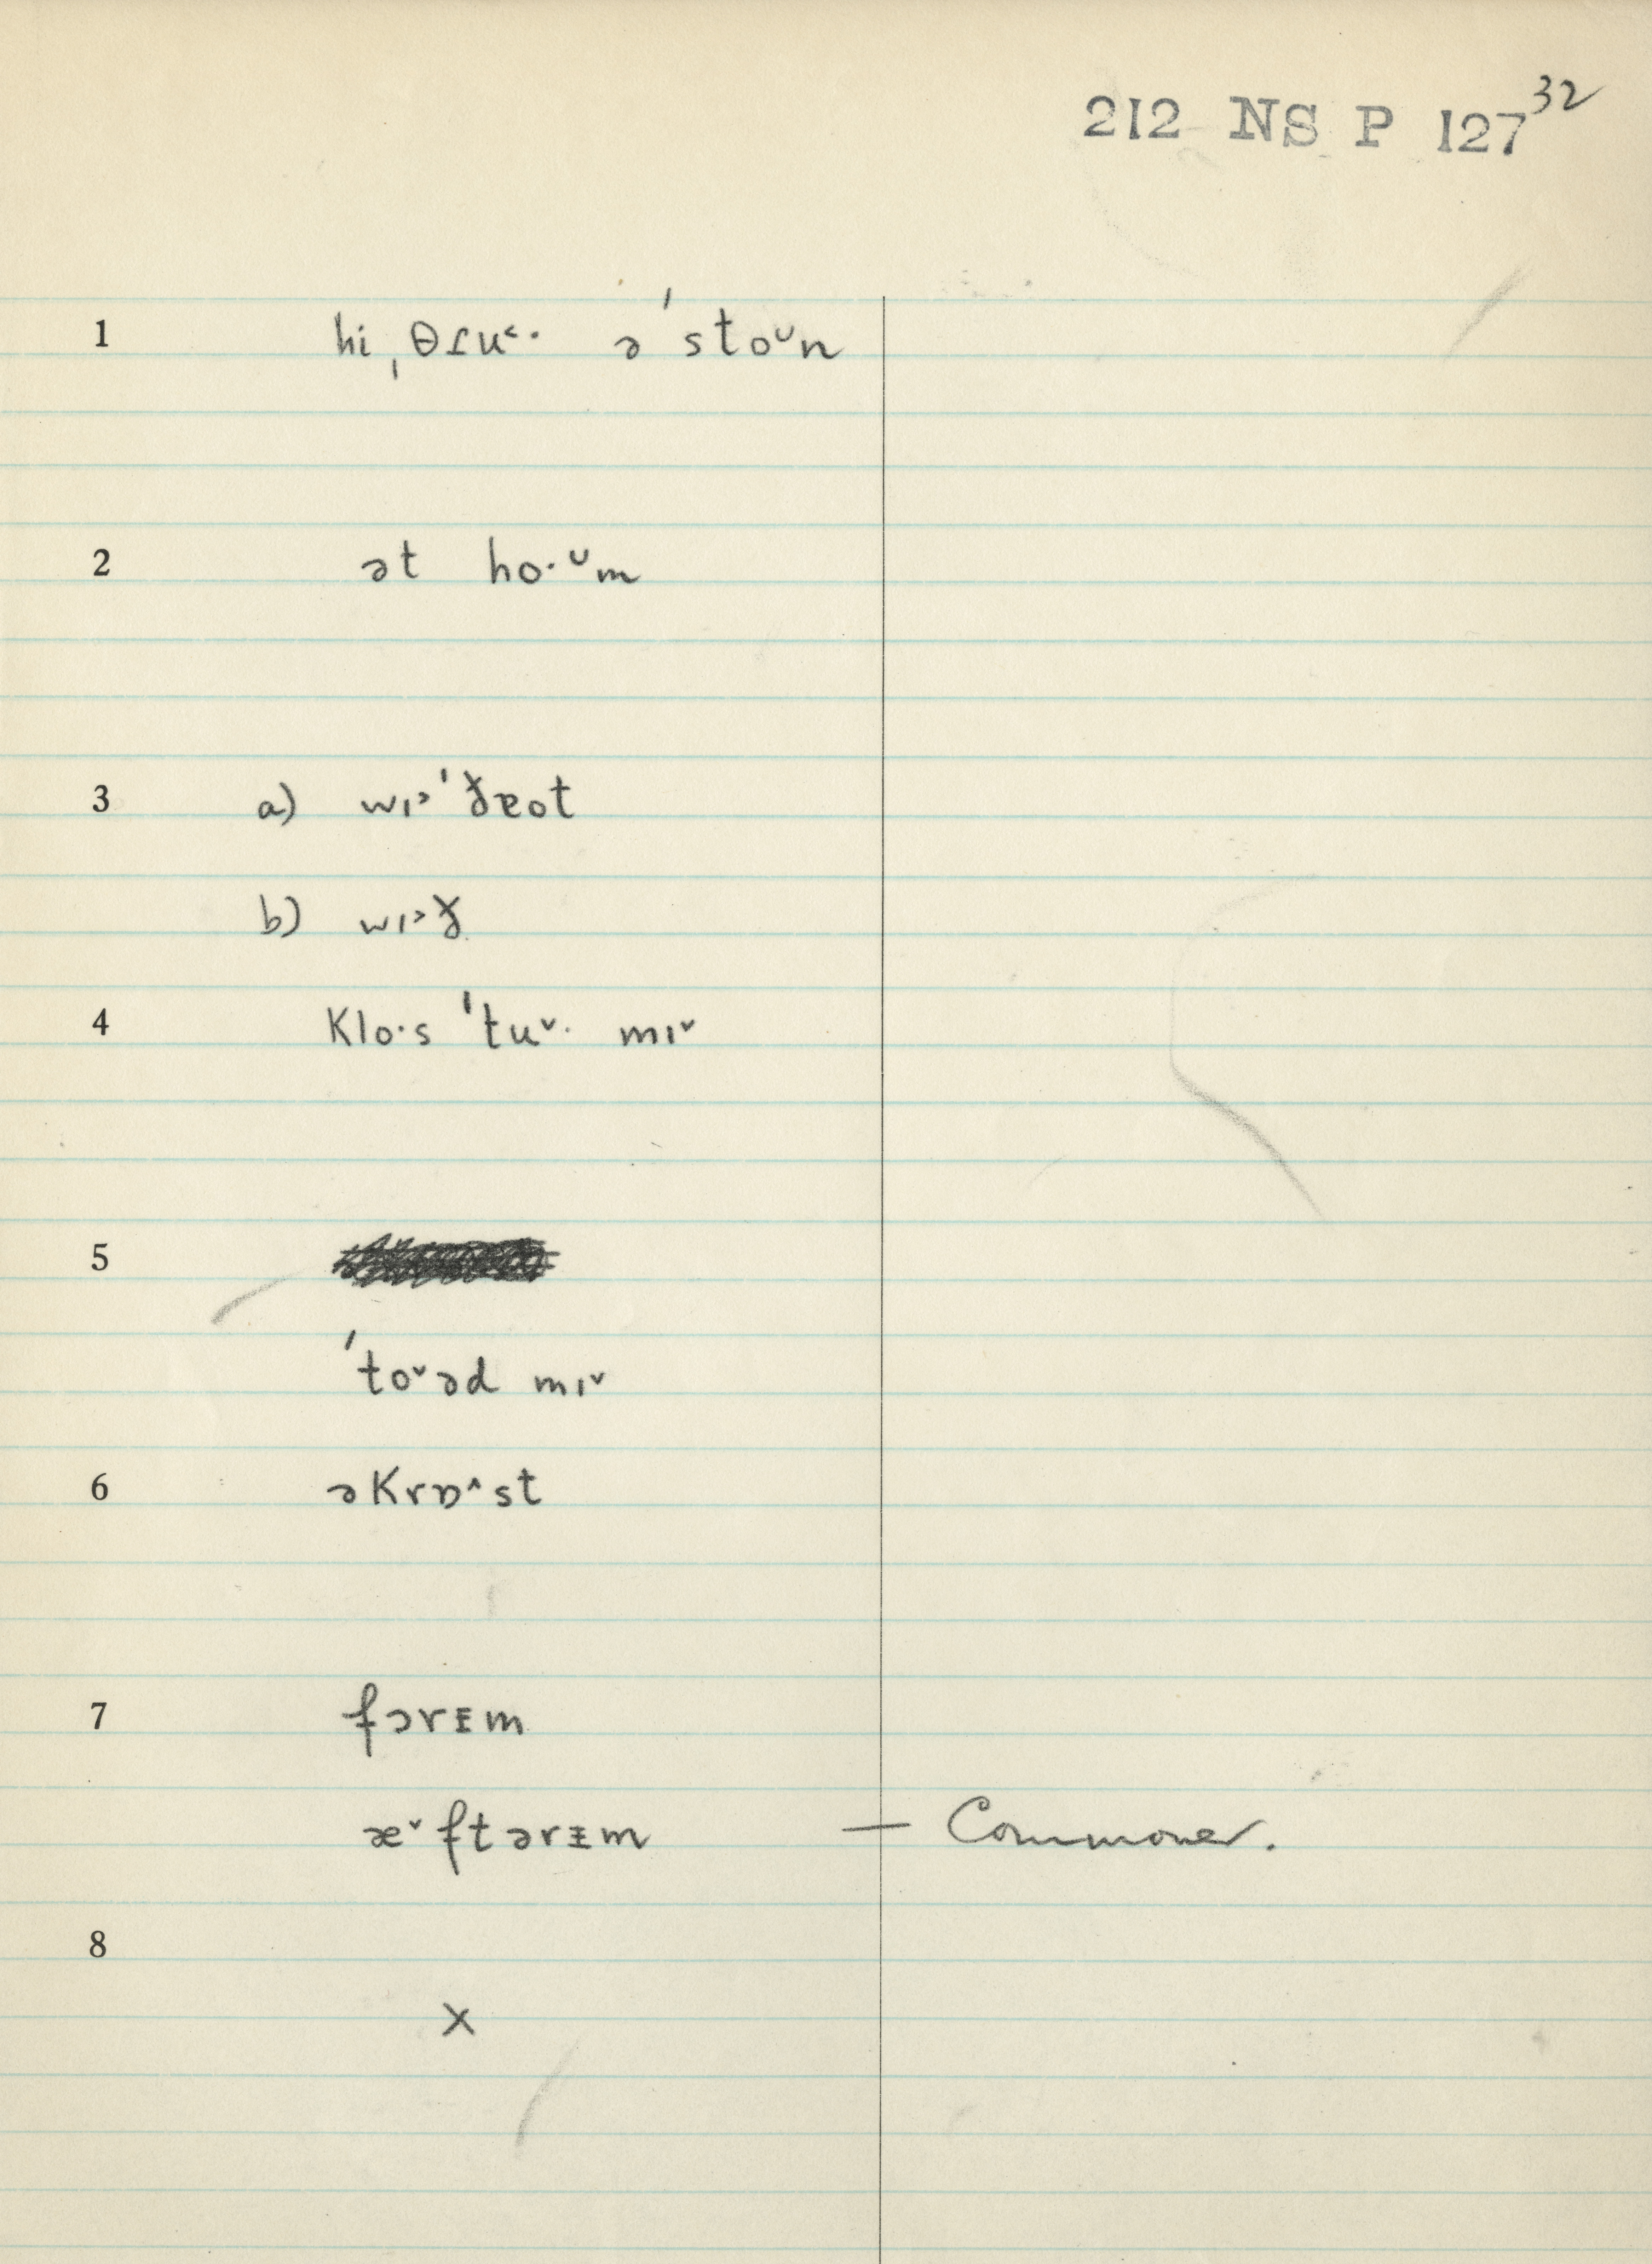 212 NS P 127 32
1 hi ˌθɾu˂· ə ˈstoᴗn
2 ət ho·ᴗm
3 a) wɪ˃ˈðɐot
b) wɪ˃ð
4 Klo·s ˈtu˅· mɪ˅
5
ˈto˅əd mɪ˅
6 əKrɒ˄st
7 fərᵻm
æ˅ftərᵻm — Commoner.
8
x